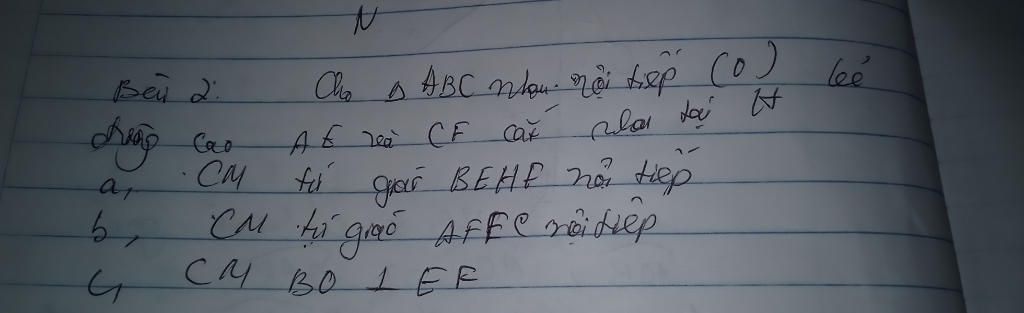 N
Bài 2: Cho Δ ABC nhọn nội tiếp (O) kẻ
đường cao AE và CF cắt nhau tại H
a, CM tứ giác BEHF nội tiếp
b, CM tứ giác AFEC nội tiếp
c, CM BO ⊥ EF